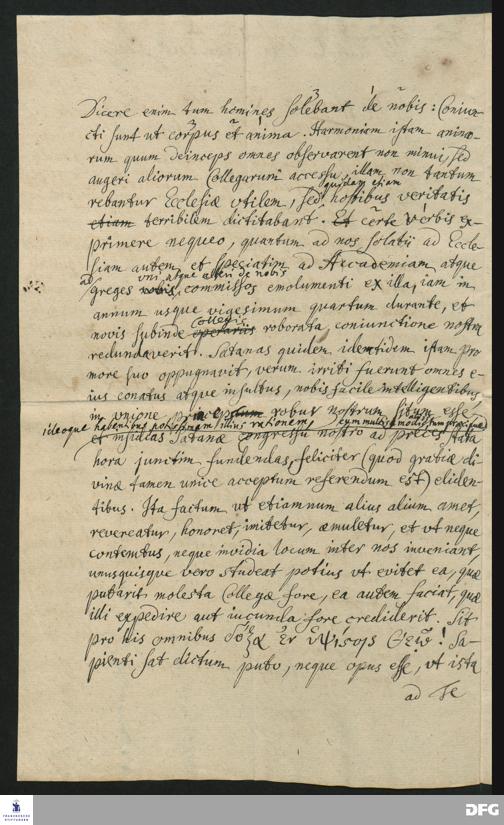 Dicere enim tum homines solebant de nobis: Coniun-
cti sunt ut corpus et anima. Harmoniam istam animo-
rum quum deinceps omnes observarent non minui, sed
augeri aliorum Collegarum accessu, illam non tantum
quidam etiam
rebantur Ecclesiæ utilem, sed hostibus veritatis
etiam terribilem dictitabant. Et certe verbis ex-
primere nequeo, quantum ad nos solatij ad Eccle-
siam autem, et speciatim ad Academiam, atque
ad uni atque alteri de nobis
greges nobis commissos emolumenti ex illa, iam in
annum usque vigesimum quartum durante, et
Collegis
novis subinde operariis roborata, coniunctione nostra
redundaverit. Satanas quidem identidem istam pro
more suo oppugnavit, verum irriti fuerunt omnes e-
ius conatus atque insultus, nobis facile intelligentibus,
in unione robur nostrum situm esse,
ideoque habentibus rationem, cum multis modis tum præcipue
et insidias Satanæ congressu nostro ad preces stata
hora junctim fundendas, feliciter (quod gratiæ di-
vinæ tamen unice acceptum referendum est) eliden-
tibus. Ita factum ut etiamnum alius alium amet,
revereatur, honoret, imitetur, æmuletur, et ut neque
contemtus, neque invidia locum inter nos inveniant,
unusquisque vero studeat potius ut evitet ea, quæ
putarit molesta Collegæ fore, ea autem faciat, quæ
illi expedire aut iucunda fore crediderit. Sit
pro his omnibus δόξα ἐν ὑψίστοις Θεῷ! Sa-
pienti sat dictum puto, neque opus esse, ut ista
ad Te
FRANCKESCHE
STIFTUNGEN
DFG